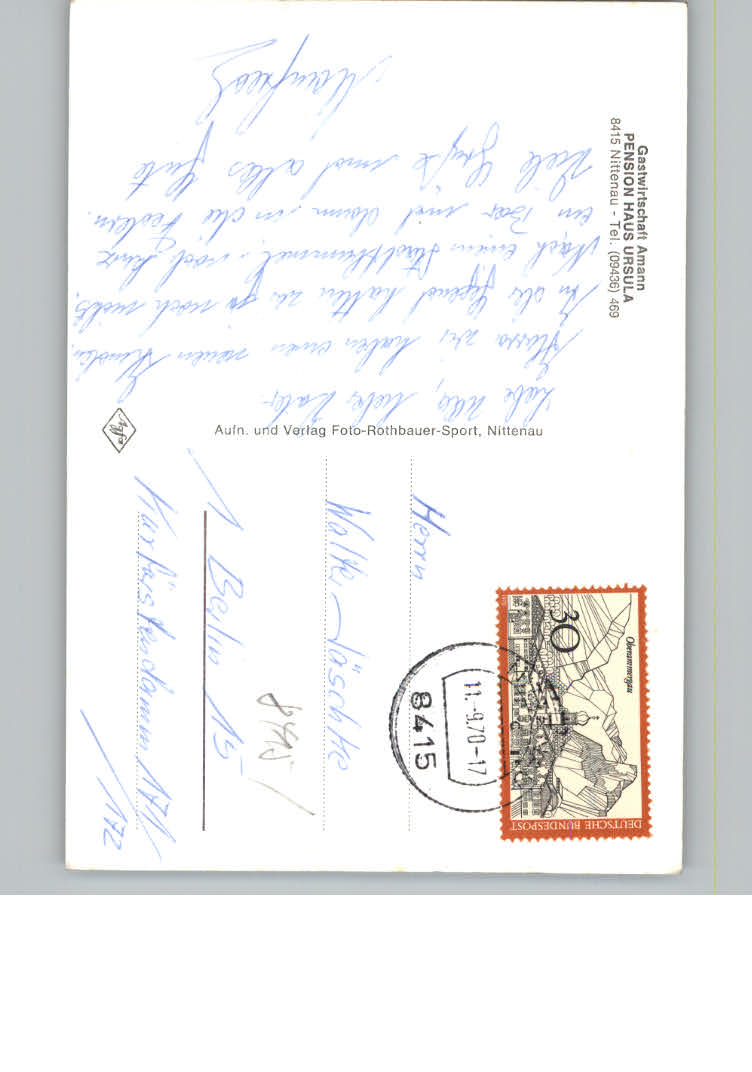 Gastwirtschaft Amann
PENSION HAUS URSULA
8415 Nittenau - Tel. (09436) 469
Liebe Ulla, lieber Vater
Hurra wir haben einen neuen
In der Gegend hatten wir ja noch nichts.
Nach einem Stadtbummel noch kurz
ein Bier und dann in die Federn.
Viele Grüße und alles Gute
Manfred
Aufn. und Verlag Foto-Rothbauer-Sport, Nittenau
Agfa
Herrn
Walter Jäschke
1 Berlin 15
Kurfürstendamm 171/
/172
8415
11.-9.70-17
Oberammergau
30
DEUTSCHE BUNDESPOST